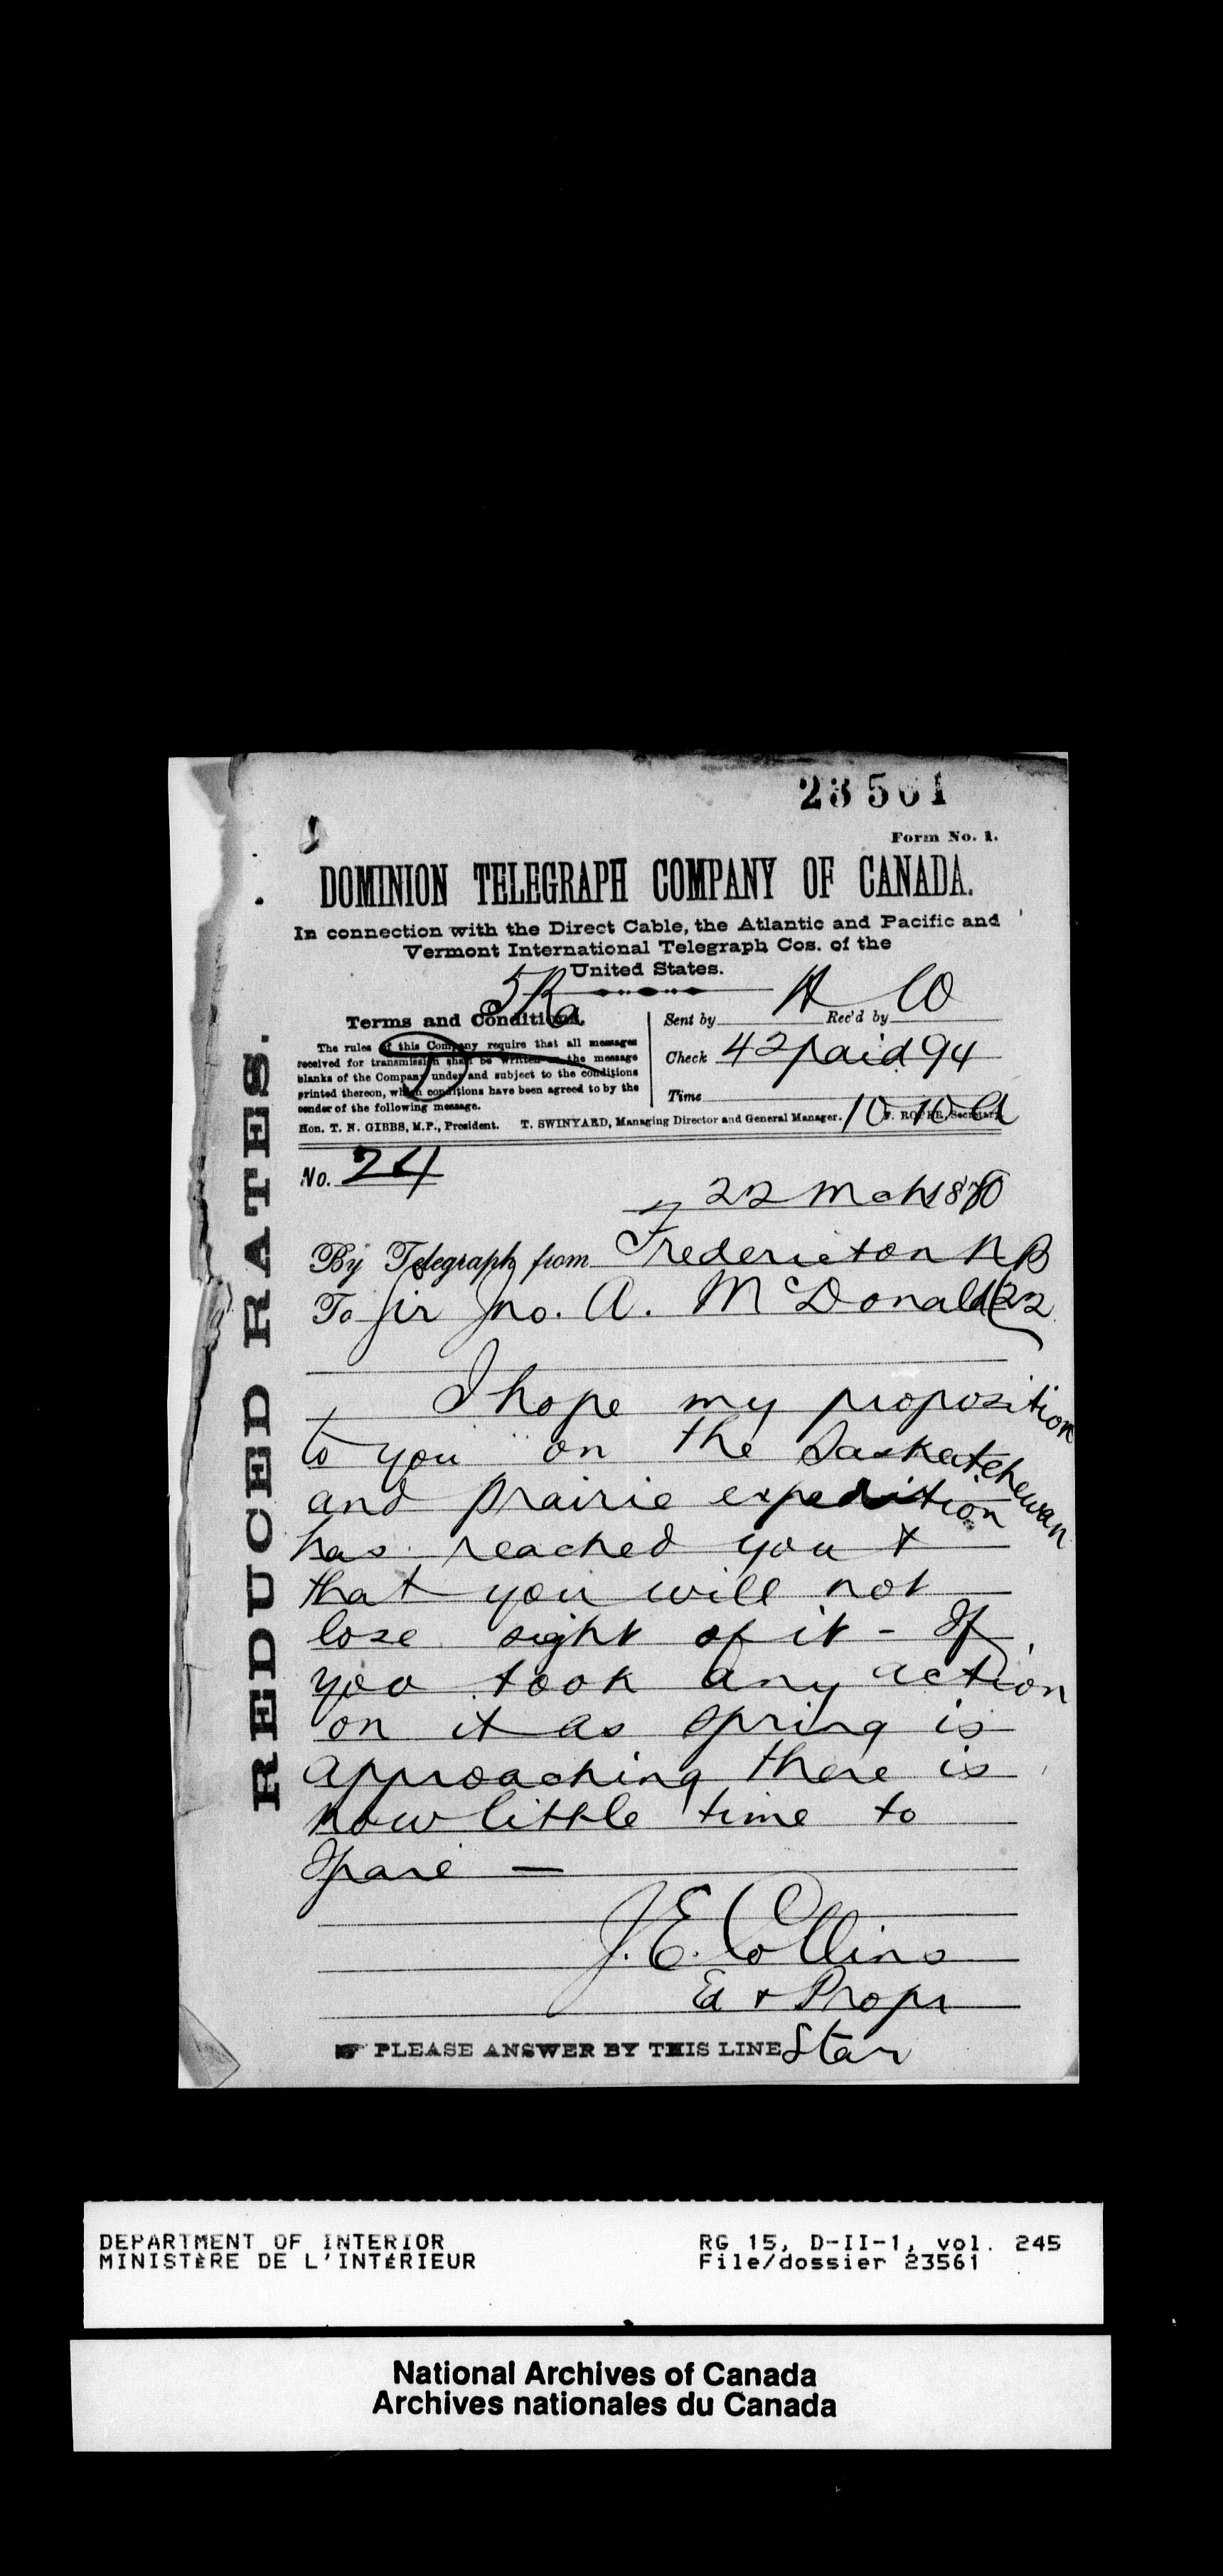 23561
Form No. 1.
DOMINION TELEGRAPH COMPANY OF CANADA.
In connection with the Direct Cable, the Atlantic and Pacific and
Vermont International Telegraph Cos. of the
United States.
Terms and Conditions.
The rules of this Company require that all messages
received for transmission shall be written on the message
blanks of the Company under and subject to the conditions
printed thereon, which conditions have been agreed to by the
sender of the following message.
Sent by H Rec'd by CO
Check 42 paid 94
Time 10 10 a
Hon. T. N. GIBBS, M.P., President. T. SWINYARD, Managing Director and General Manager. F. ROPER, Secretary.
REDUCED RATES.
No. 24
22 Mch 1880
By Telegraph from Fredericton N B
To Sir Jno. A. McDonald 22
I hope my proposition
to you on the Saskatchewan
and prairie expedition
has reached you &
that you will not
lose sight of it - If
you took any action
on it as spring is
approaching there is
now little time to
spare —
J. E. Collins
Ed & Propr
Star
PLEASE ANSWER BY THIS LINE
DEPARTMENT OF INTERIOR
MINISTÈRE DE L'INTÉRIEUR
RG 15, D-II-1, vol. 245
File/dossier 23561
National Archives of Canada
Archives nationales du Canada